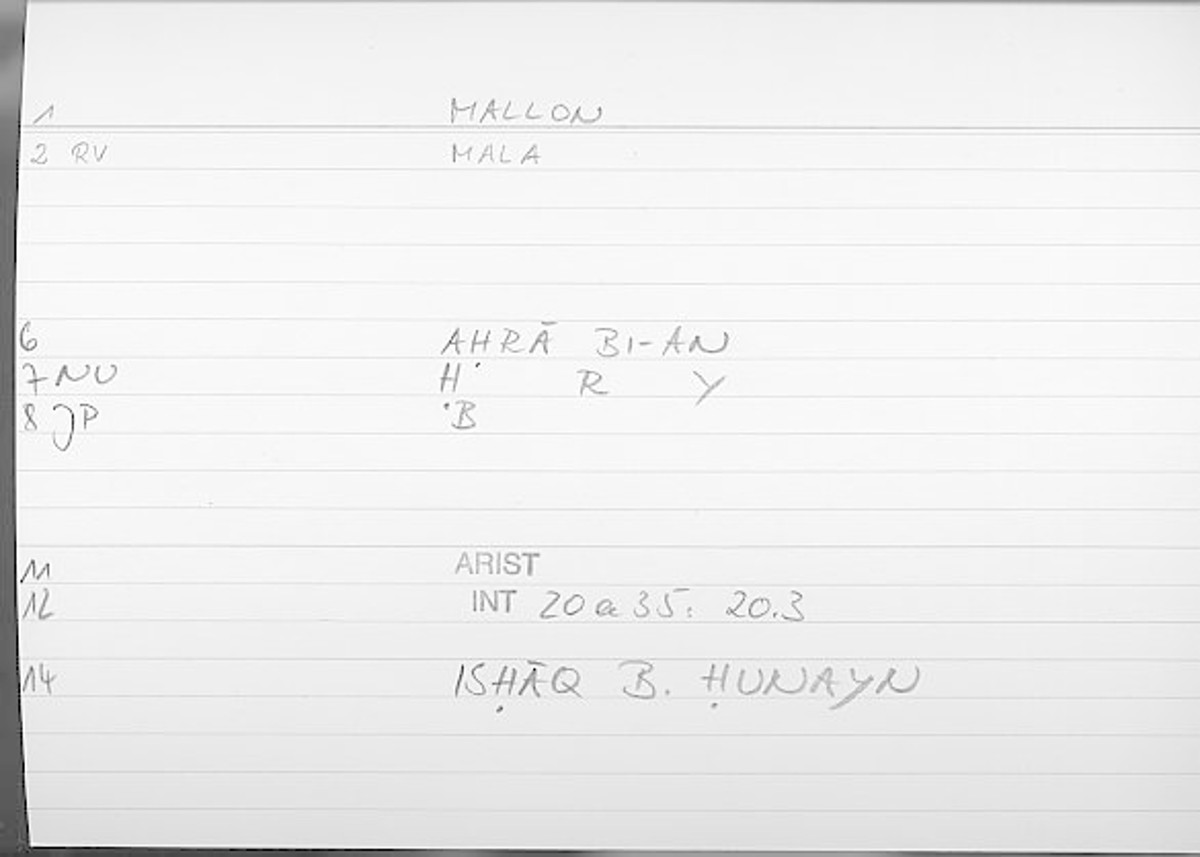 1 MALLON
2 RV MALA
6 AHRĀ BI-AN
7 NU H R Y
8 JP B
11 ARIST
12 INT 20 a 35: 20.3
14 ISḤĀQ B. ḤUNAYN